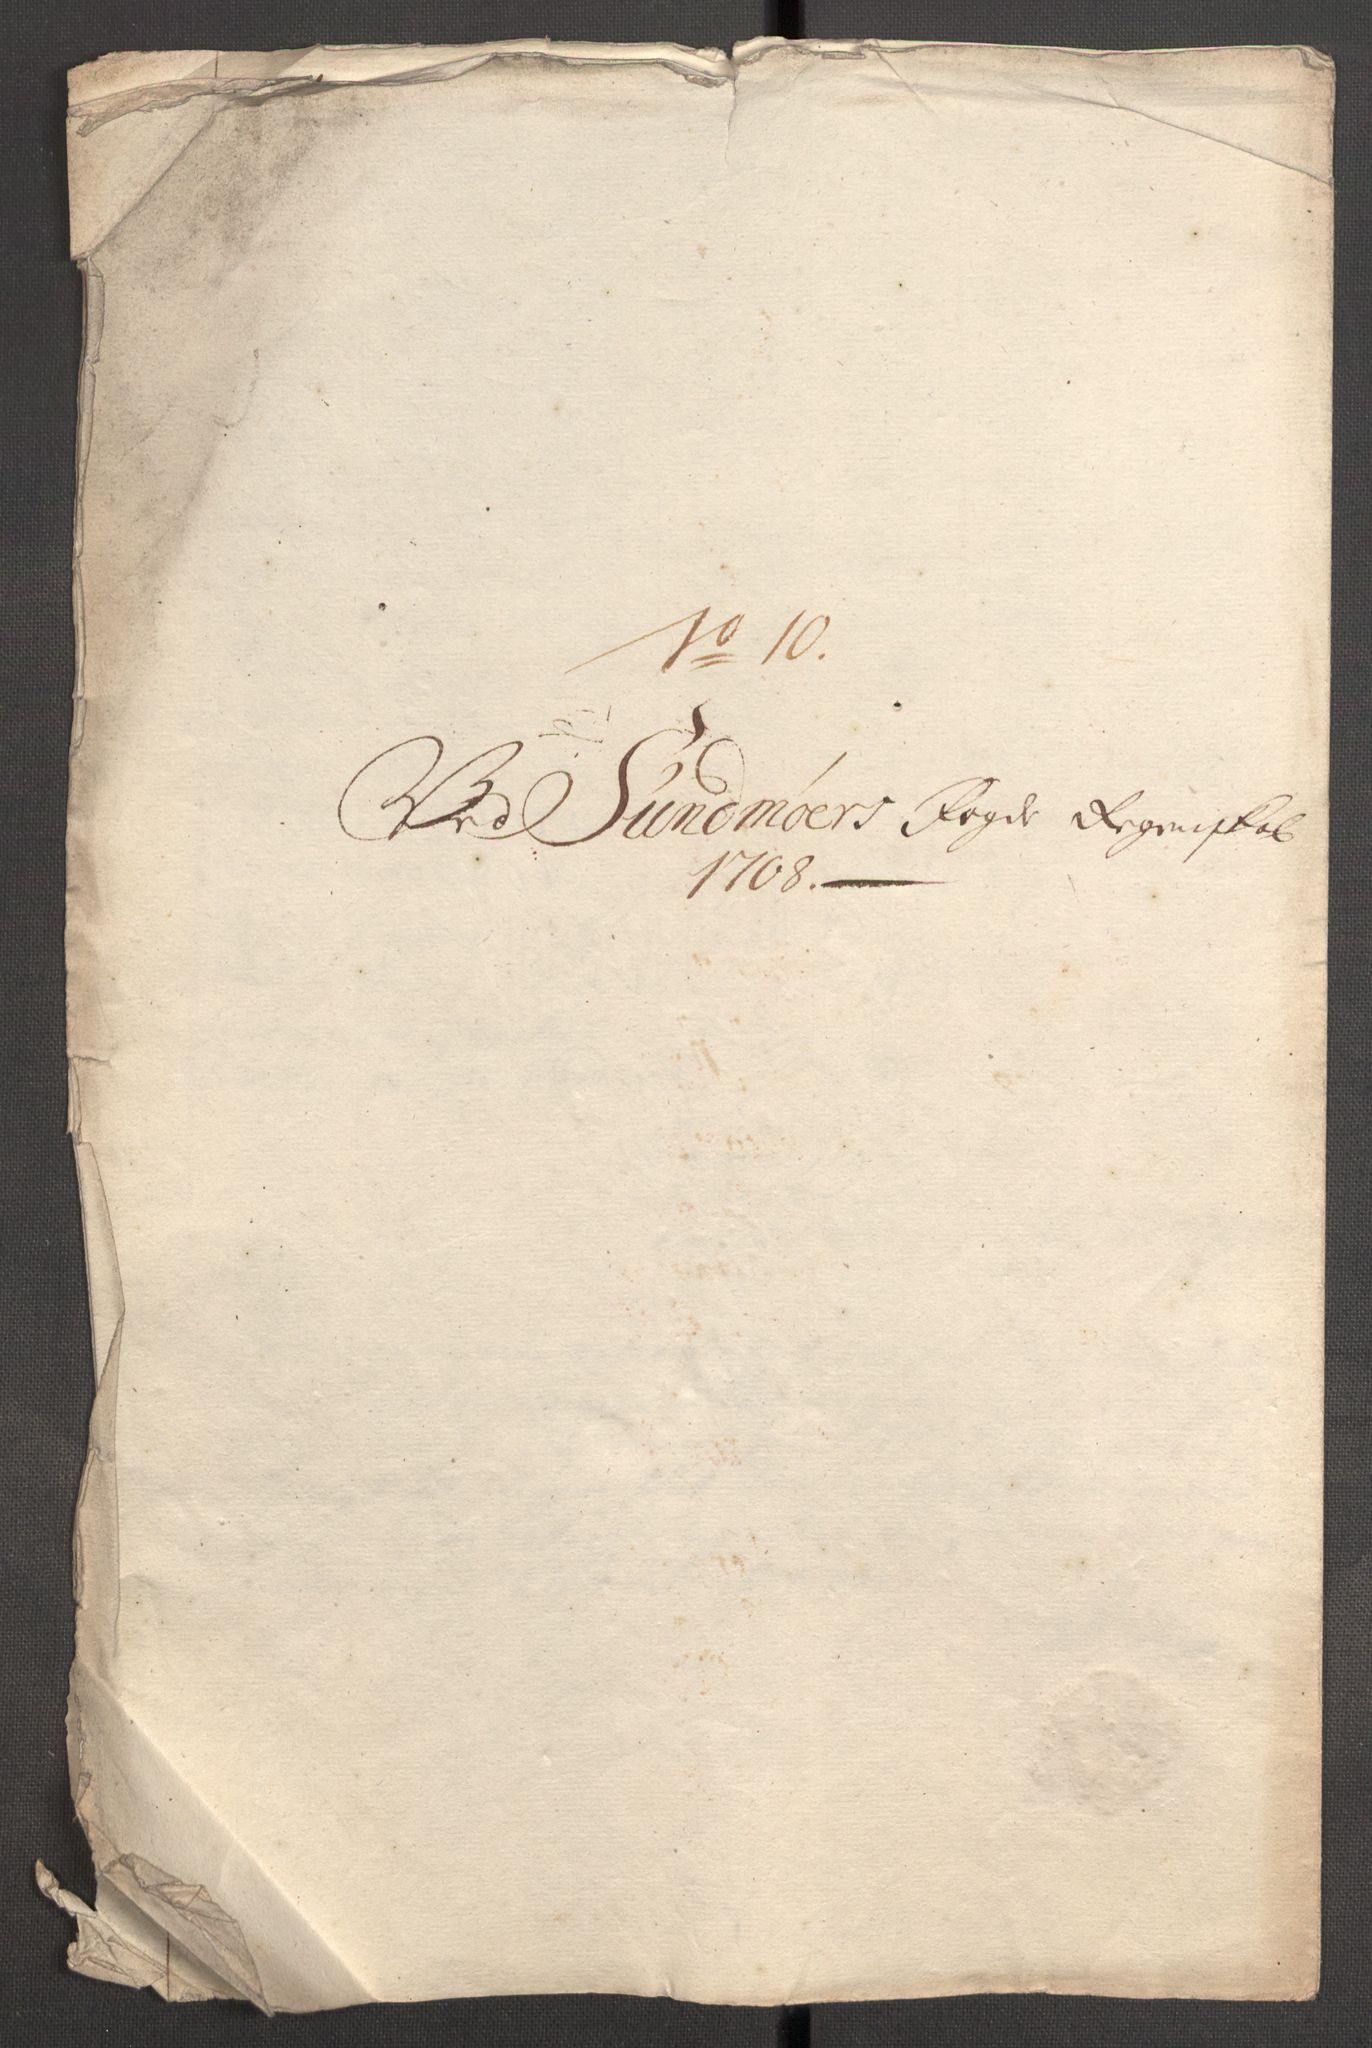 No 10.
Ved Sundmøers Fogde Regenskab
1708.